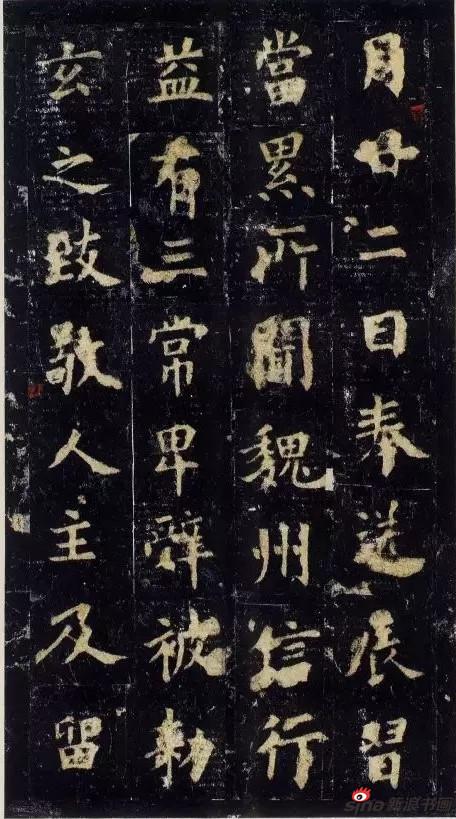 月廿二日奉送習
當累所聞魏州信行
益有三常卑辭被勅
玄之跂敬人主及留
sina新浪书画